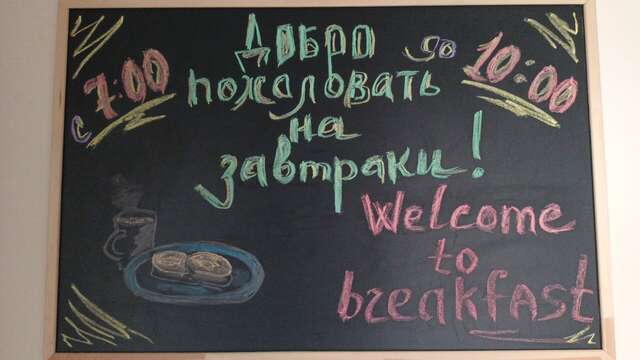 с 7:00
Добро
пожаловать
на
завтраки!
до 10:00
Welcome
to
breakfast